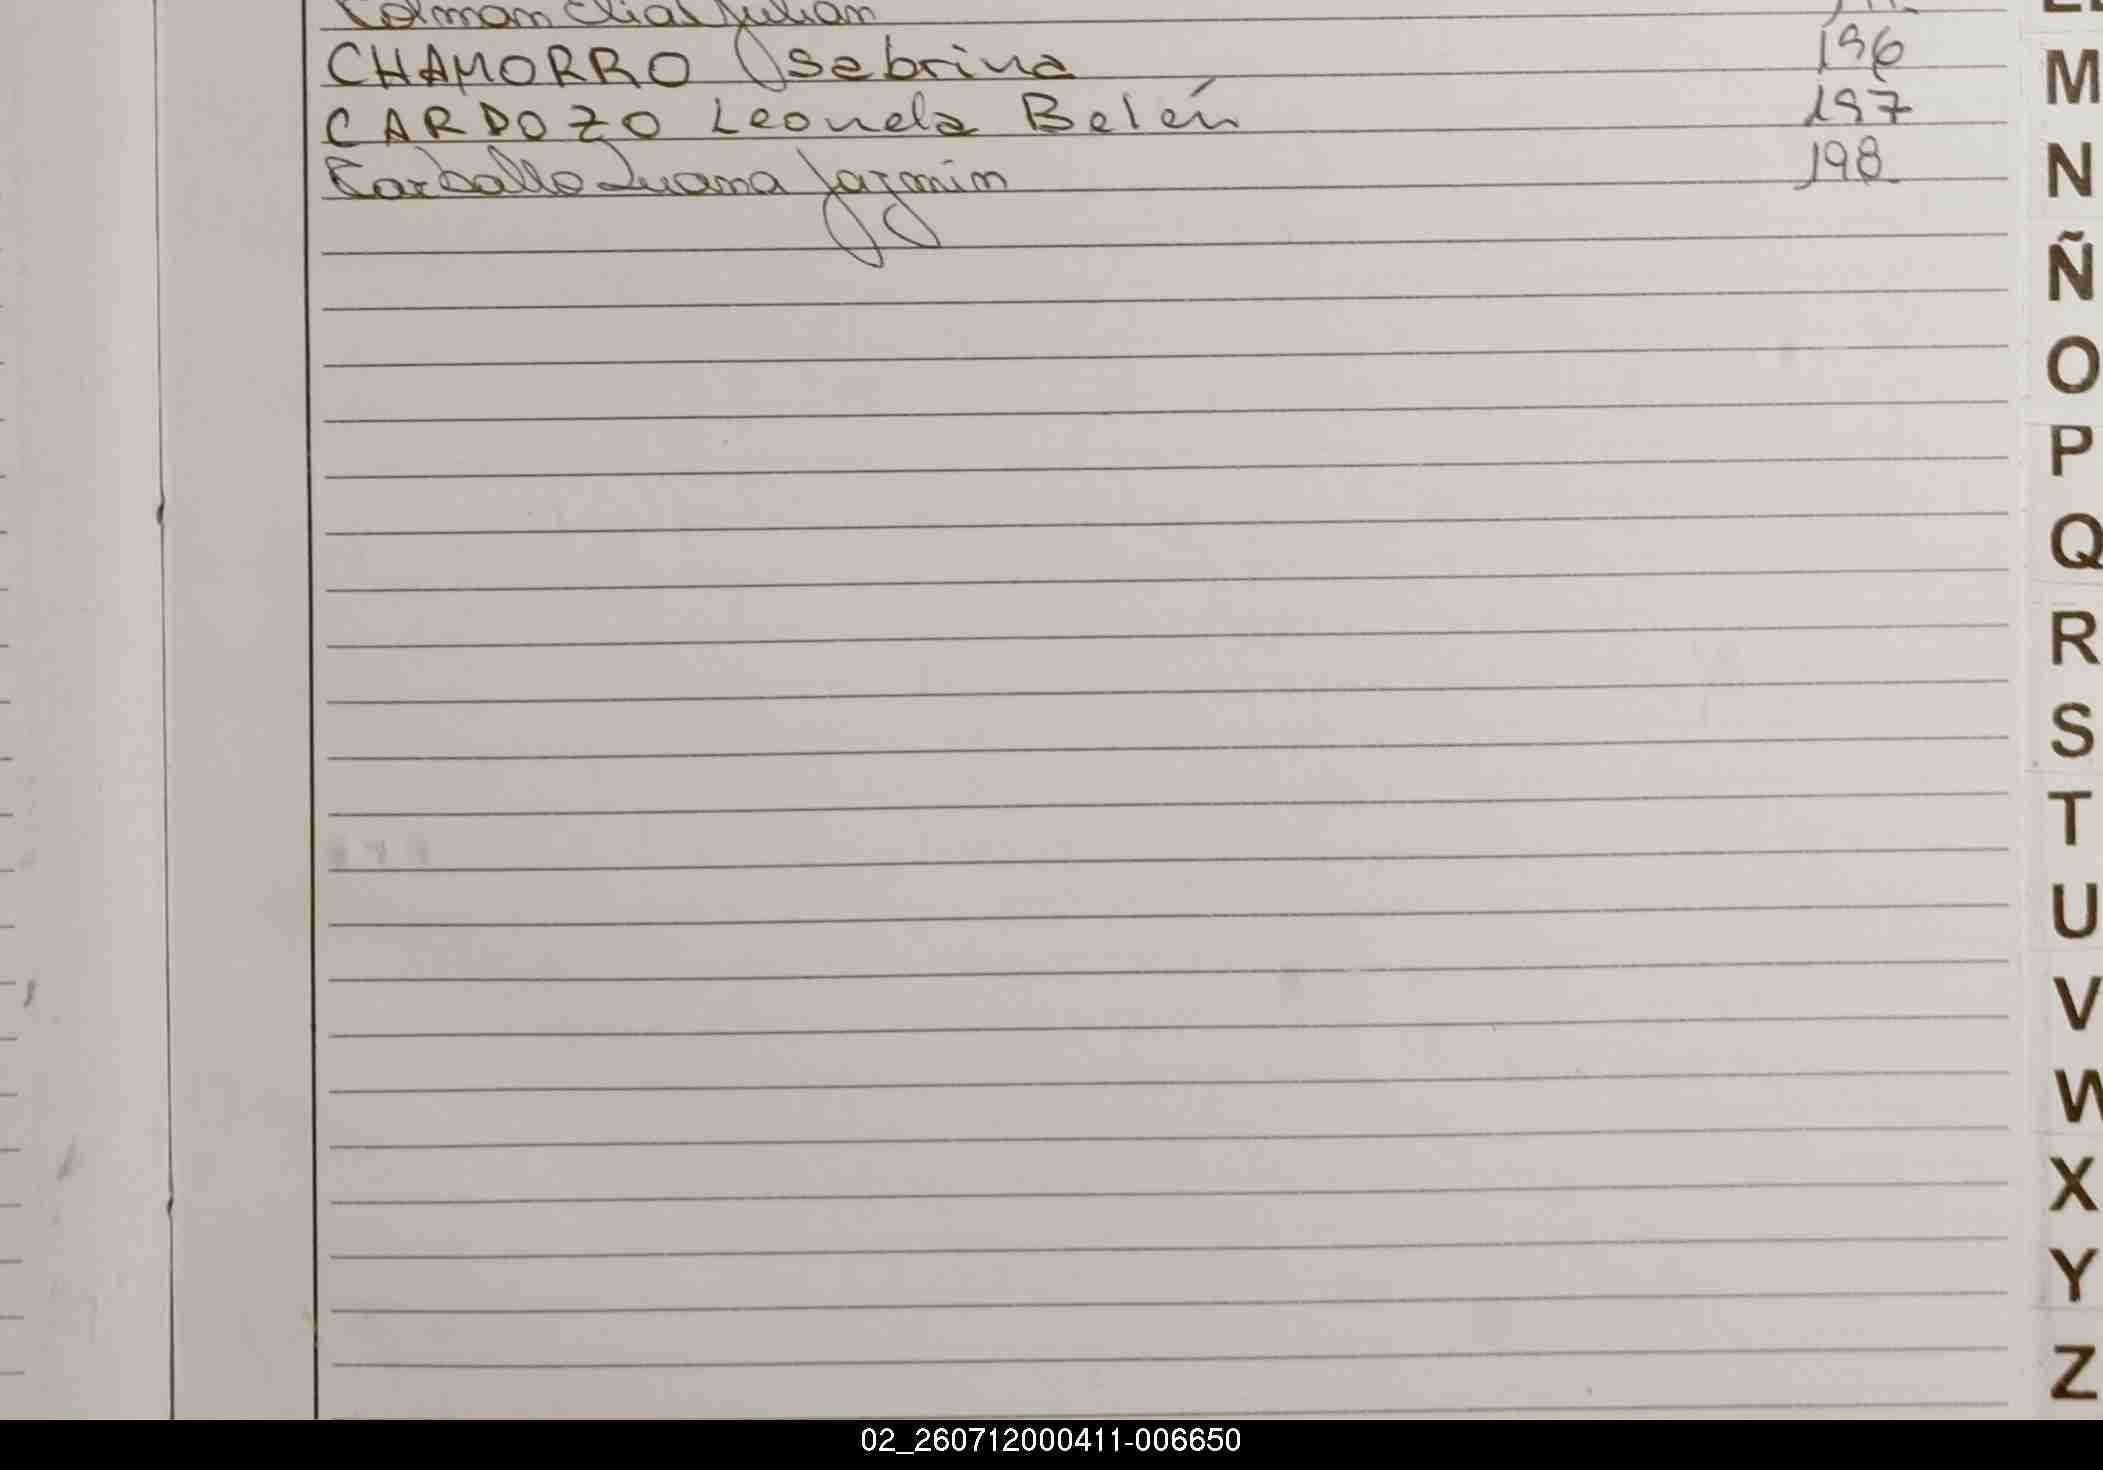 Colman Elias Julian
CHAMORRO Sabrina 196
CARDOZO Leonela Belén 197
Carballo Luana Jazmin 198
M
N
Ñ
O
P
Q
R
S
T
U
V
W
X
Y
Z
02_260712000411-006650